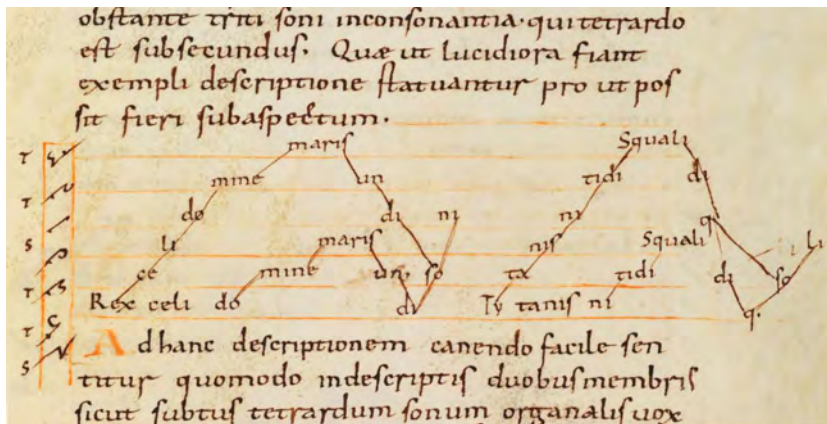 obstante triti soni inconsonantia· qui tetrardo
est subsecundus. Quæ ut lucidiora fiant
exempli descriptione statuantur pro ut pos
sit fieri subaspectum.
T maris Squali
T mine un tidi di
do di ni ni q
S li maris nis Squali li
T ce mine un so ta tidi di so
T Rex celi do di Ty tanis ni q.
S
Ad hanc descriptionem canendo facile sen
titur quomodo indescriptis duobus membris
sicut subtus tetrardum sonum organalis uox